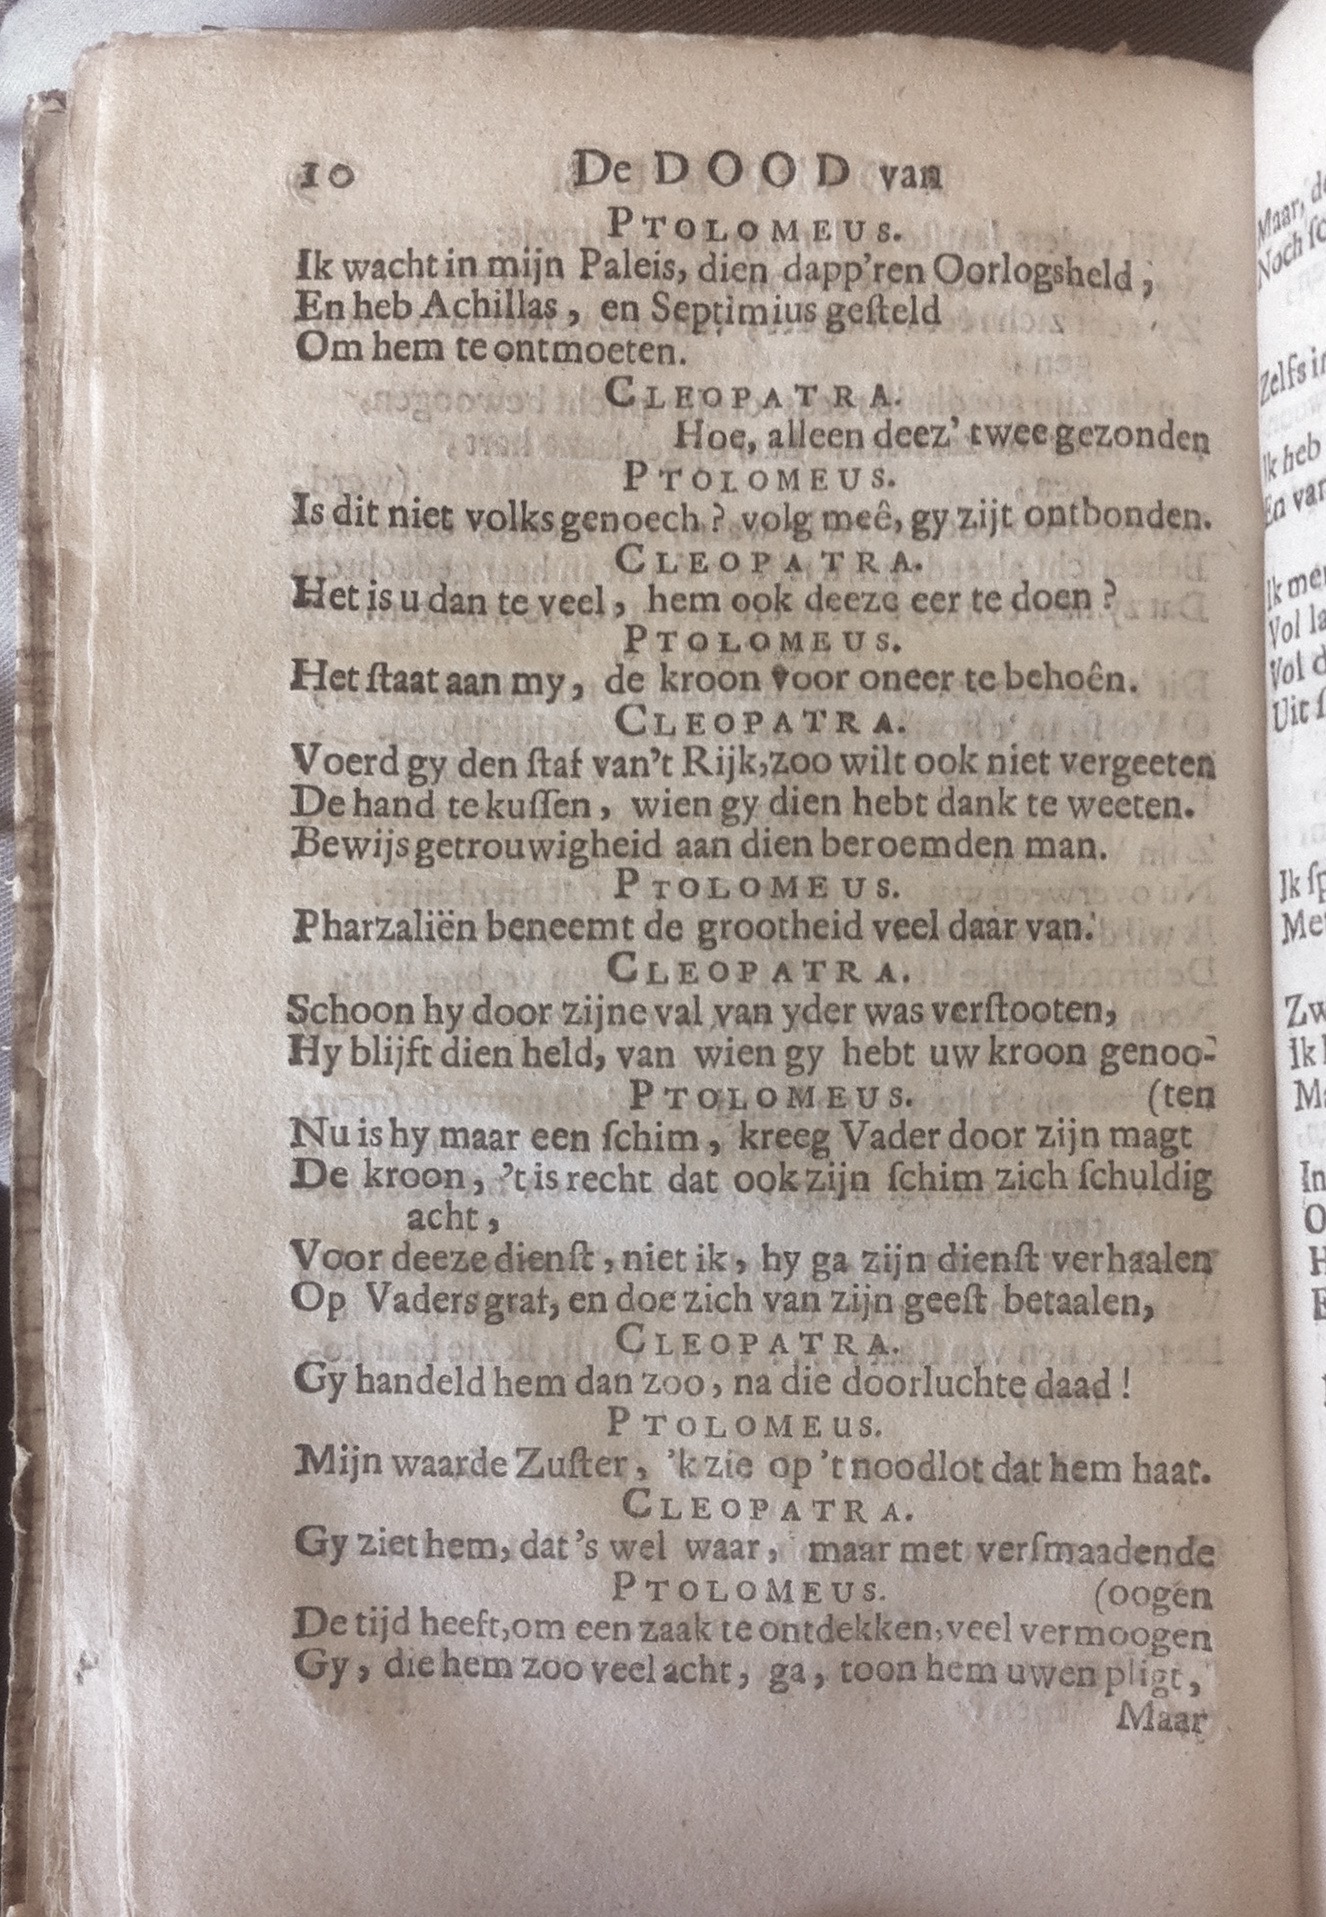 10 De DOOD van
PTOLOMEUS.
Ik wacht in mijn Paleis, dien dapp'ren Oorlogsheld,
En heb Achillas, en Septimius geſteld
Om hem te ontmoeten.
CLEOPATRA.
Hoe, alleen deez' twee gezonden
PTOLOMEUS.
Is dit niet volks genoech? volg meê, gy zijt ontbonden.
CLEOPATRA.
Het is u dan te veel, hem ook deeze eer te doen?
PTOLOMEUS.
Het ſtaat aan my, de kroon voor oneer te behoên.
CLEOPATRA.
Voerd gy den ſtaf van't Rijk, zoo wilt ook niet vergeeten
De hand te kuſſen, wien gy dien hebt dank te weeten.
Bewijs getrouwigheid aan dien beroemden man.
PTOLOMEUS.
Pharzaliën beneemt de grootheid veel daar van.
CLEOPATRA.
Schoon hy door zijne val van yder was verſtooten,
Hy blijft dien held, van wien gy hebt uw kroon genoo-
PTOLOMEUS. (ten
Nu is hy maar een ſchim, kreeg Vader door zijn magt
De kroon, 't is recht dat ook zijn ſchim zich ſchuldig
acht,
Voor deeze dienſt, niet ik, hy ga zijn dienſt verhaalen
Op Vaders graf, en doe zich van zijn geeſt betaalen,
CLEOPATRA.
Gy handeld hem dan zoo, na die doorluchte daad!
PTOLOMEUS.
Mijn waarde Zuſter, 'k zie op 't noodlot dat hem haat.
CLEOPATRA.
Gy ziet hem, dat 's wel waar, maar met verſmaadende
PTOLOMEUS. (oogen
De tijd heeft, om een zaak te ontdekken, veel vermoogen
Gy, die hem zoo veel acht, ga, toon hem uwen pligt,
Maar